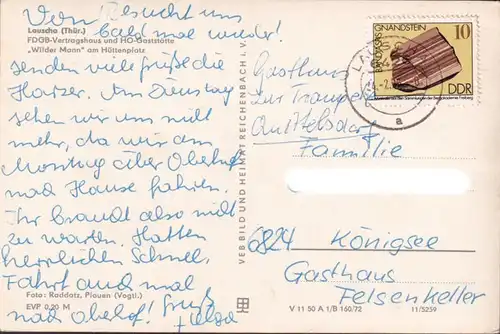 Von
Besucht uns
bald mal wieder!
Lauscha (Thür.)
FDGB-Vertragshaus und HO-Gaststätte
"Wilder Mann" am Hüttenplatz
senden viele Grüße die
Harzer. Am Dienstag
sehen wir uns nicht
mehr, da wir am
Montag über Oberhof
nach Hause fahren.
Ihr braucht also nicht
zu warten. Hatten
herrlichen Schnee.
Fahrt auch mal
nach Oberhof! Gruß
Foto: Raddatz, Plauen (Vogtl.)
EVP 0,20 M
VEB BILD UND HEIMAT REICHENBACH i. V.
V 11 50 A 1/B 160/72 11/5259
GNANDSTEIN
10
DDR
a
Gasthaus
zur
Familie
6824 Königsee
Gasthaus
Felsenkeller